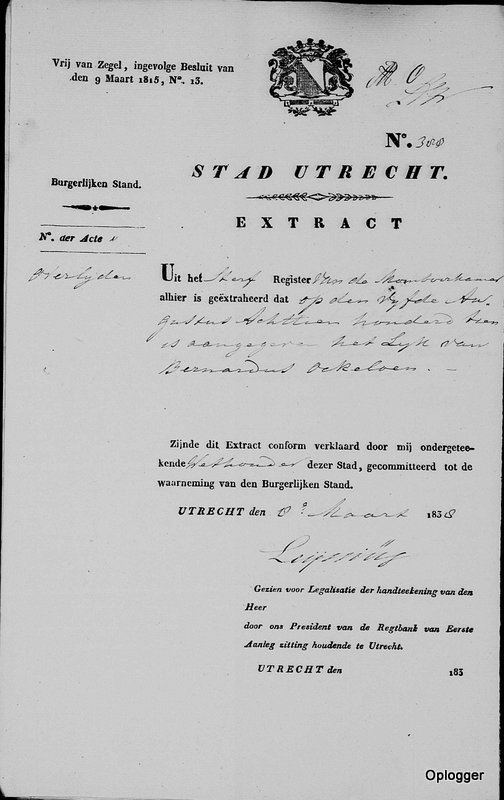 Vrij van Zegel, ingevolge Besluit van
den 9 Maart 1815, No. 13.
No. 388
STAD UTRECHT.
Burgerlijken Stand.
EXTRACT
No. der Acte
overlyden
Uit het Sterf Register van de Momboirkamer
alhier is geëxtraheerd dat op den vyfde Au-
gustus Achttien honderd tien
is aangegeven het Lyk van
Bernardus Ockeloen. —
Zijnde dit Extract conform verklaard door mij ondergetee-
kende Wethouder dezer Stad, gecommitteerd tot de
waarneming van den Burgerlijken Stand.
UTRECHT den 8e Maart 1838
Gezien voor Legalisatie der handteekening van den
Heer
door ons President van de Regtbank van Eerste
Aanleg zitting houdende te Utrecht.
UTRECHT den 183
Oplogger